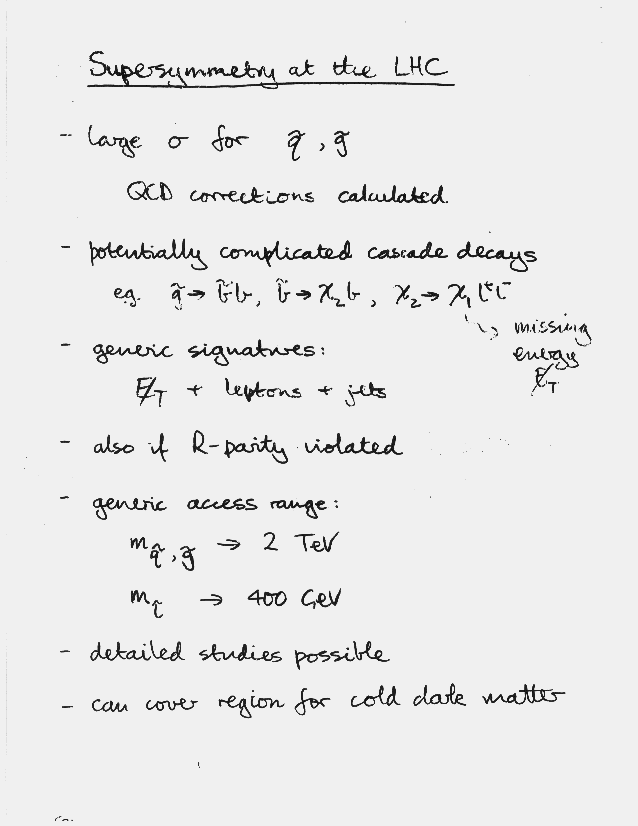 Supersymmetry at the LHC
- large σ for q̃, g̃
QCD corrections calculated.
- potentially complicated cascade decays
e.g. g̃ → b̃b, b̃ → χ₂b, χ₂ → χ₁ l⁺l⁻
↳ missing
energy
E̸_T
- generic signatures:
E̸_T + leptons + jets
- also if R-parity violated
- generic access range:
m_q̃,g̃ → 2 TeV
m_l̃ → 400 GeV
- detailed studies possible
- can cover region for cold dark matter